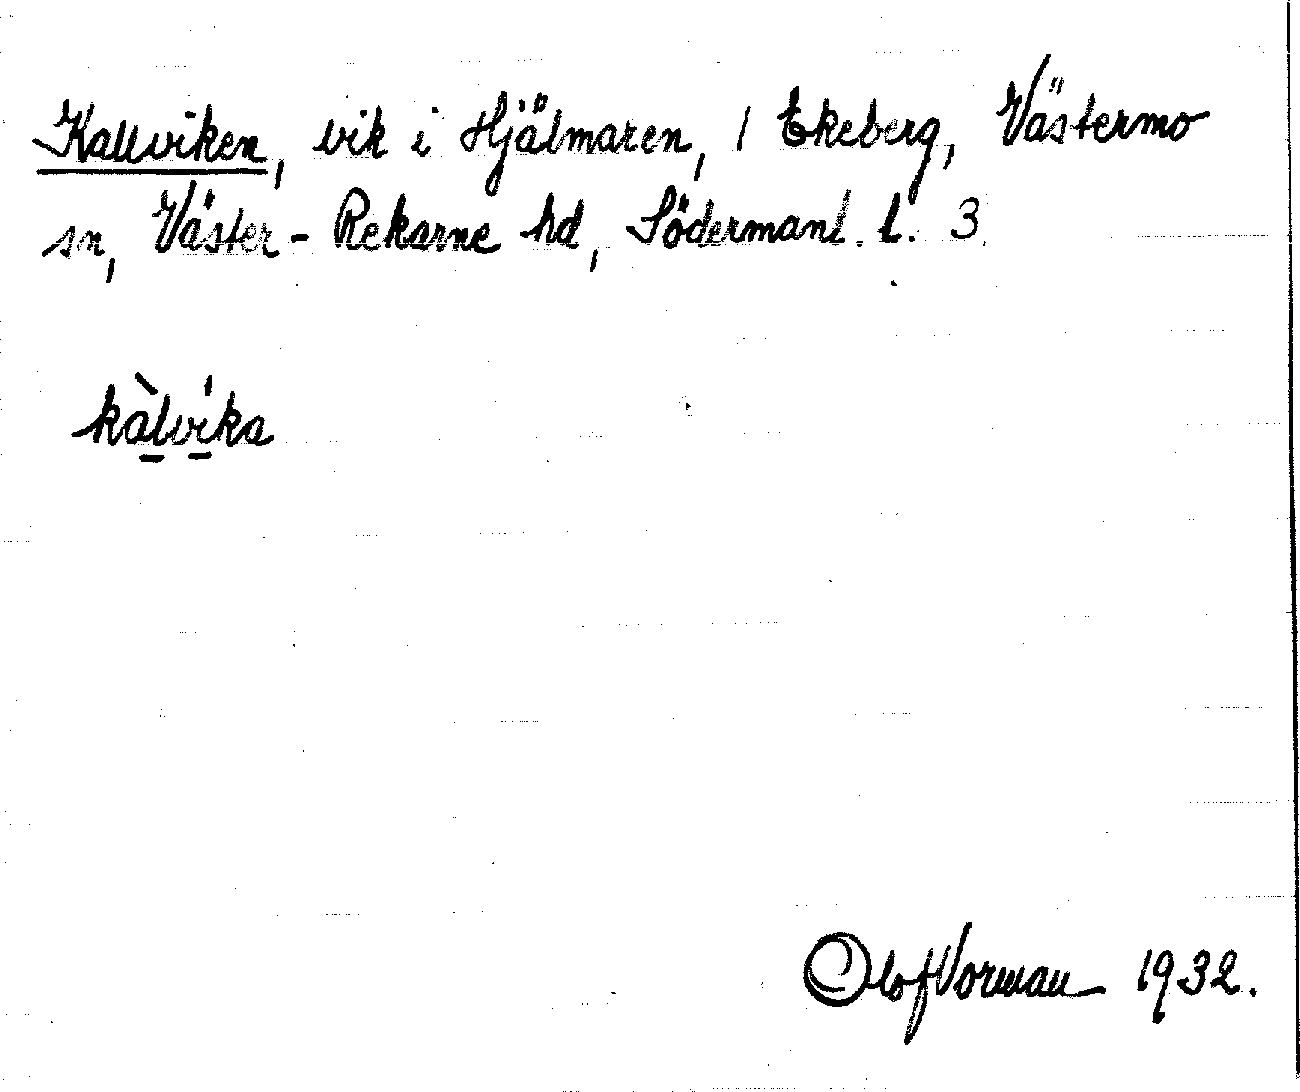 Kallviken, vik i Hjälmaren, / Ekeberg, Västermo
sn, Väster-Rekarne hd, Södermanl. l. 3.
kàlvíka
Olof Vorman 1932.